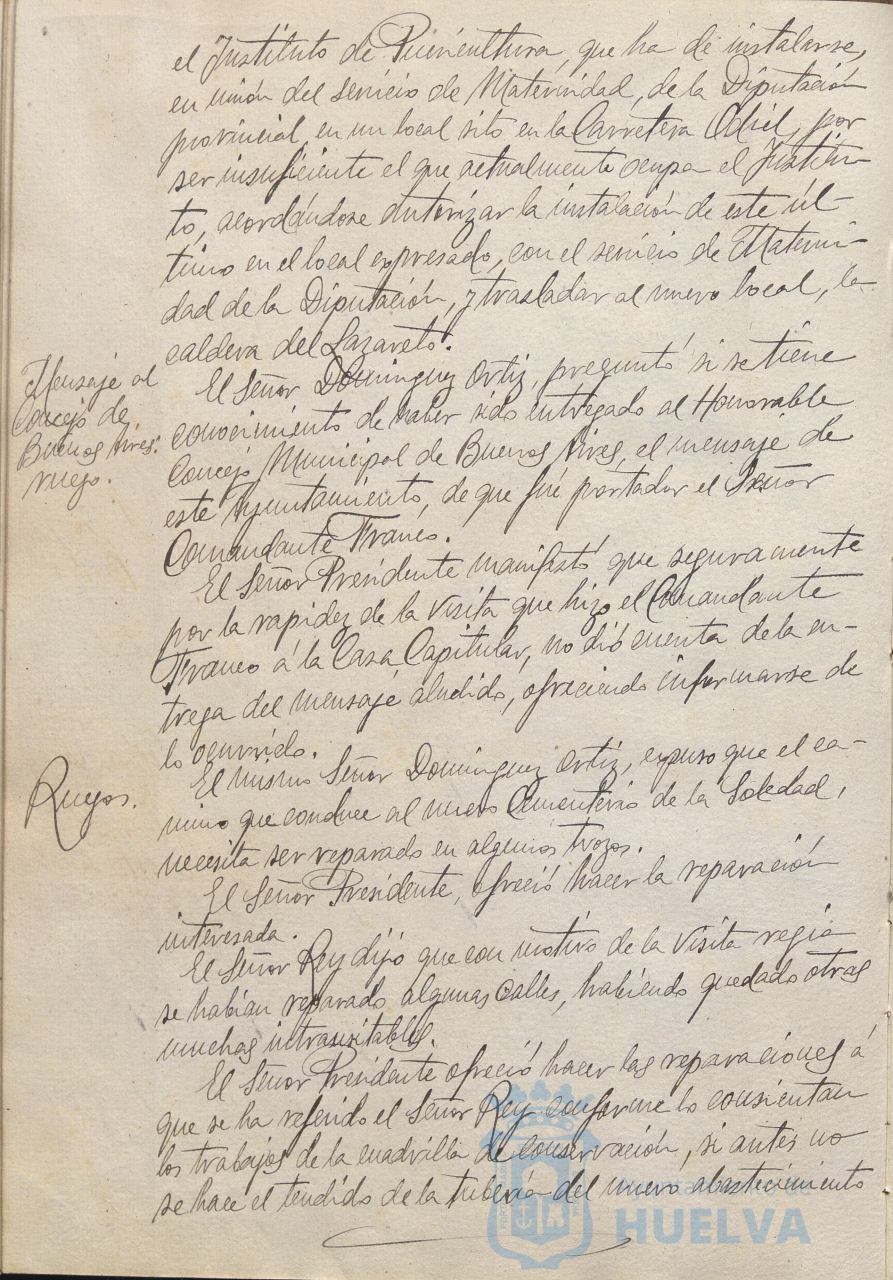 el Instituto de Puericultura, que ha de instalarse,
en unión del servicio de Maternidad, de la Diputación
provincial, en un local sito en la Carretera Odiel, por
ser insuficiente el que actualmente ocupa el Institu-
to, acordándose autorizar la instalación de este úl-
timo en el local expresado, con el servicio de Materni-
dad de la Diputación, y trasladar al nuevo local, la
caldera del Lazareto.
Mensaje al
Concejo de
Buenos Aires:
ruego.
El Señor Dominguez Ortiz, preguntó si se tiene
conocimiento de haber sido entregado al Honorable
Concejo Municipal de Buenos Aires, el mensaje de
este Ayuntamiento, de que fué portador el Señor
Comandante Franco.
El Señor Presidente manifestó que seguramente
por la rapidez de la visita que hizo el Comandante
Franco á la Casa Capitular, no dió cuenta de la en-
trega del mensaje aludido, ofreciendo informarse de
lo ocurrido.
Ruegos.
El mismo Señor Dominguez Ortiz, expuso que el ca-
mino que conduce al nuevo Cementerio de la Soledad,
necesita ser reparado en algunos trozos.
El Señor Presidente, ofreció hacer la reparación
interesada.
El Señor Rey dijo que con motivo de la visita regia
se habían reparado algunas calles, habiendo quedado otras
muchas intransitables.
El Señor Presidente ofreció hacer las reparaciones á
que se ha referido el Señor Rey conforme lo consientan
los trabajos de la cuadrilla de conservación, si antes no
se hace el tendido de la tubería del nuevo abastecimiento
HUELVA